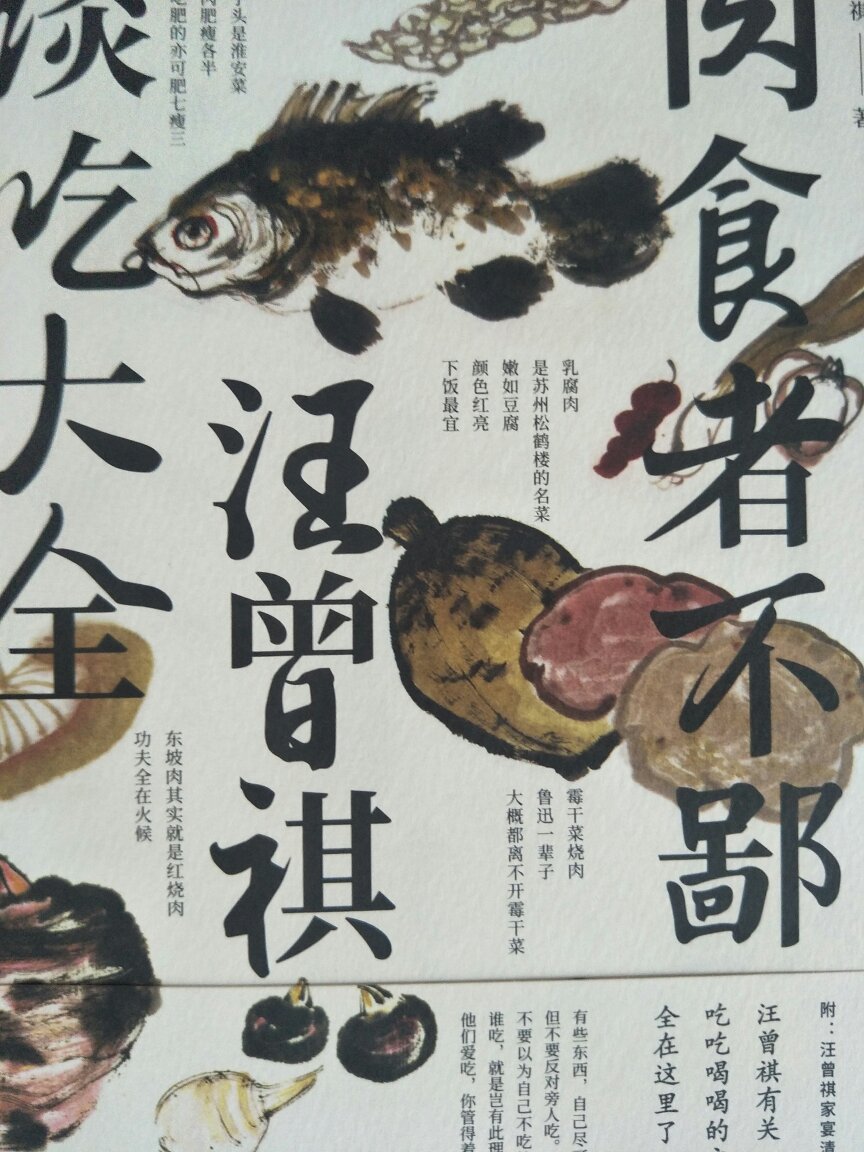 肉食者不鄙
汪曾祺
谈吃大全
祺——著
子头是淮安菜
肉肥瘦各半
吃肥的亦可肥七瘦三
乳腐肉
是苏州松鹤楼的名菜
嫩如豆腐
颜色红亮
下饭最宜
霉干菜烧肉
鲁迅一辈子
大概都离不开霉干菜
东坡肉其实就是红烧肉
功夫全在火候
附：汪曾祺家宴清
汪曾祺有关
吃吃喝喝的
全在这里了
有些东西，自己尽
但不要反对旁人吃。
不要以为自己不吃
谁吃，就是岂有此理
他们爱吃，你管得着